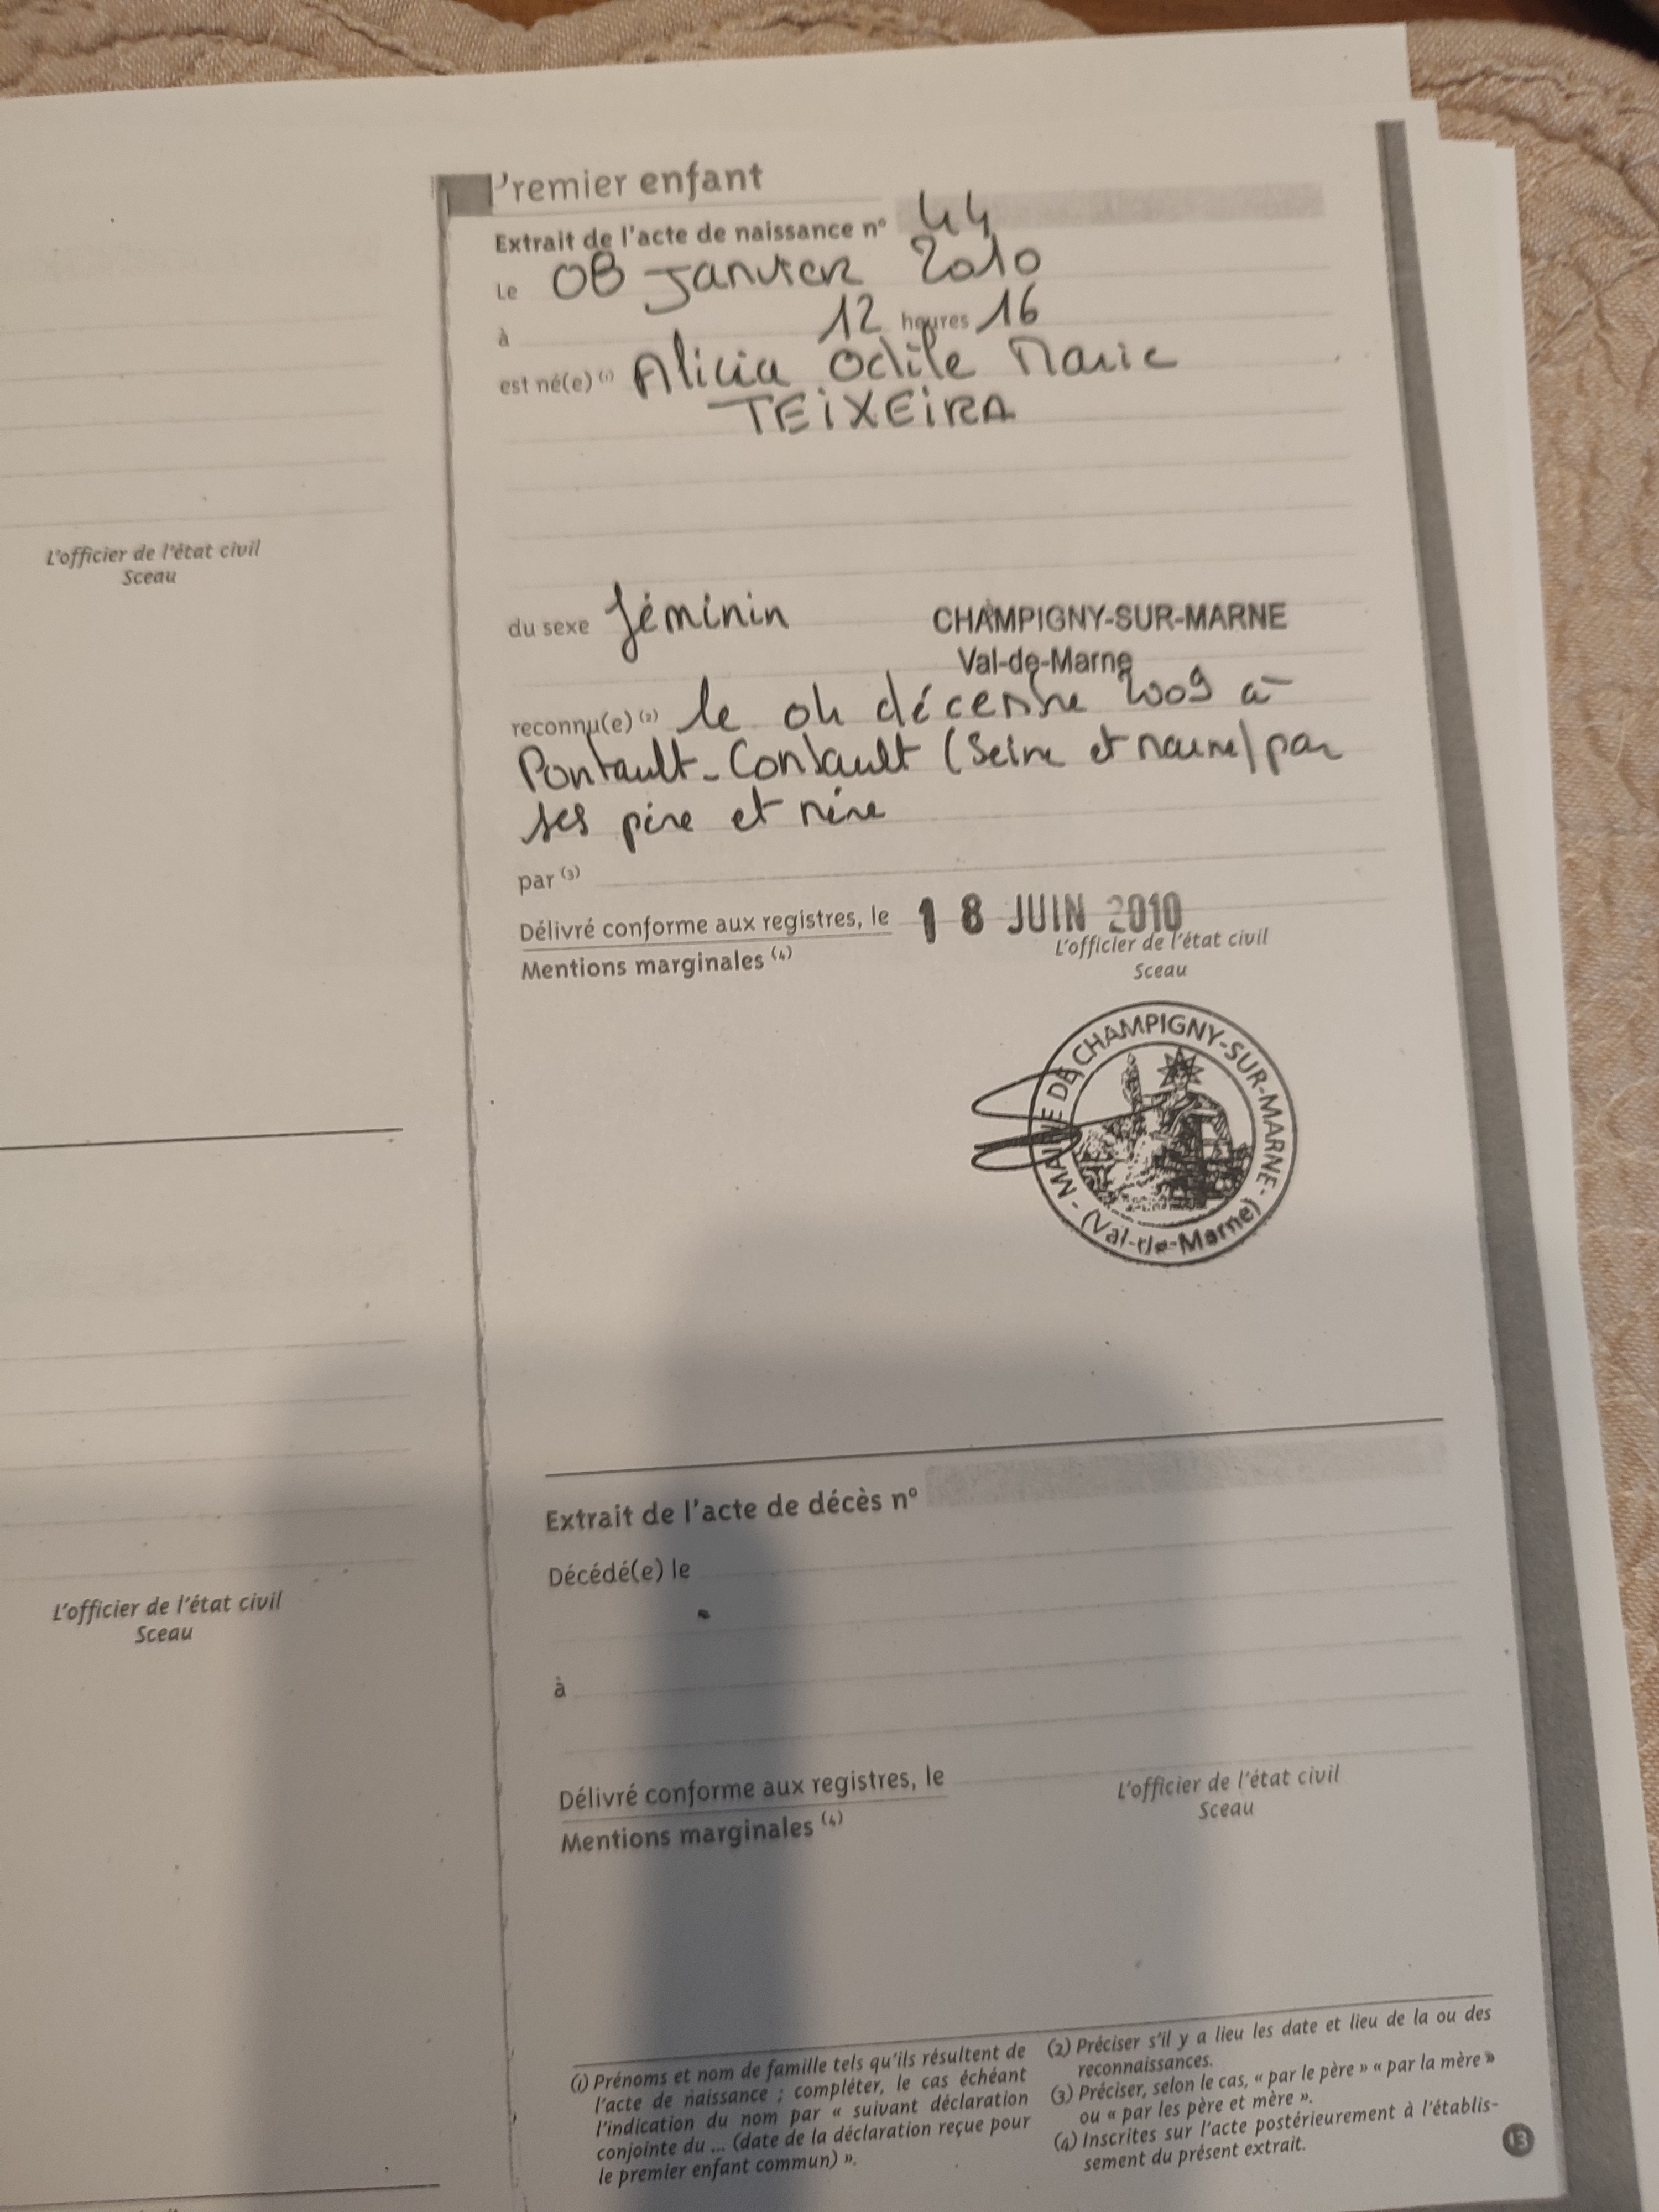 L'officier de l'état civil
Sceau
L'officier de l'état civil
Sceau
Premier enfant
Extrait de l'acte de naissance n° 44
Le 08 Janvier 2010
à 12 heures 16
est né(e) (1) Alicia Odile Marie
TEIXEIRA
du sexe féminin CHAMPIGNY-SUR-MARNE
Val-de-Marne
reconnu(e) (2) le 04 décembre 2009 à
Pontault-Combault (Seine et Marne) par
ses père et mère
par (3)
Délivré conforme aux registres, le 18 JUIN 2010
Mentions marginales (4)
L'officier de l'état civil
Sceau
MAIRIE DE CHAMPIGNY-SUR-MARNE - (Val-de-Marne)
Extrait de l'acte de décès n°
Décédé(e) le
à
Délivré conforme aux registres, le
Mentions marginales (4)
L'officier de l'état civil
Sceau
(1) Prénoms et nom de famille tels qu'ils résultent de
l'acte de naissance ; compléter, le cas échéant
l'indication du nom par « suivant déclaration
conjointe du ... (date de la déclaration reçue pour
le premier enfant commun) ».
(2) Préciser s'il y a lieu les date et lieu de la ou des
reconnaissances.
(3) Préciser, selon le cas, « par le père » « par la mère »
ou « par les père et mère ».
(4) Inscrites sur l'acte postérieurement à l'établis-
sement du présent extrait.
13